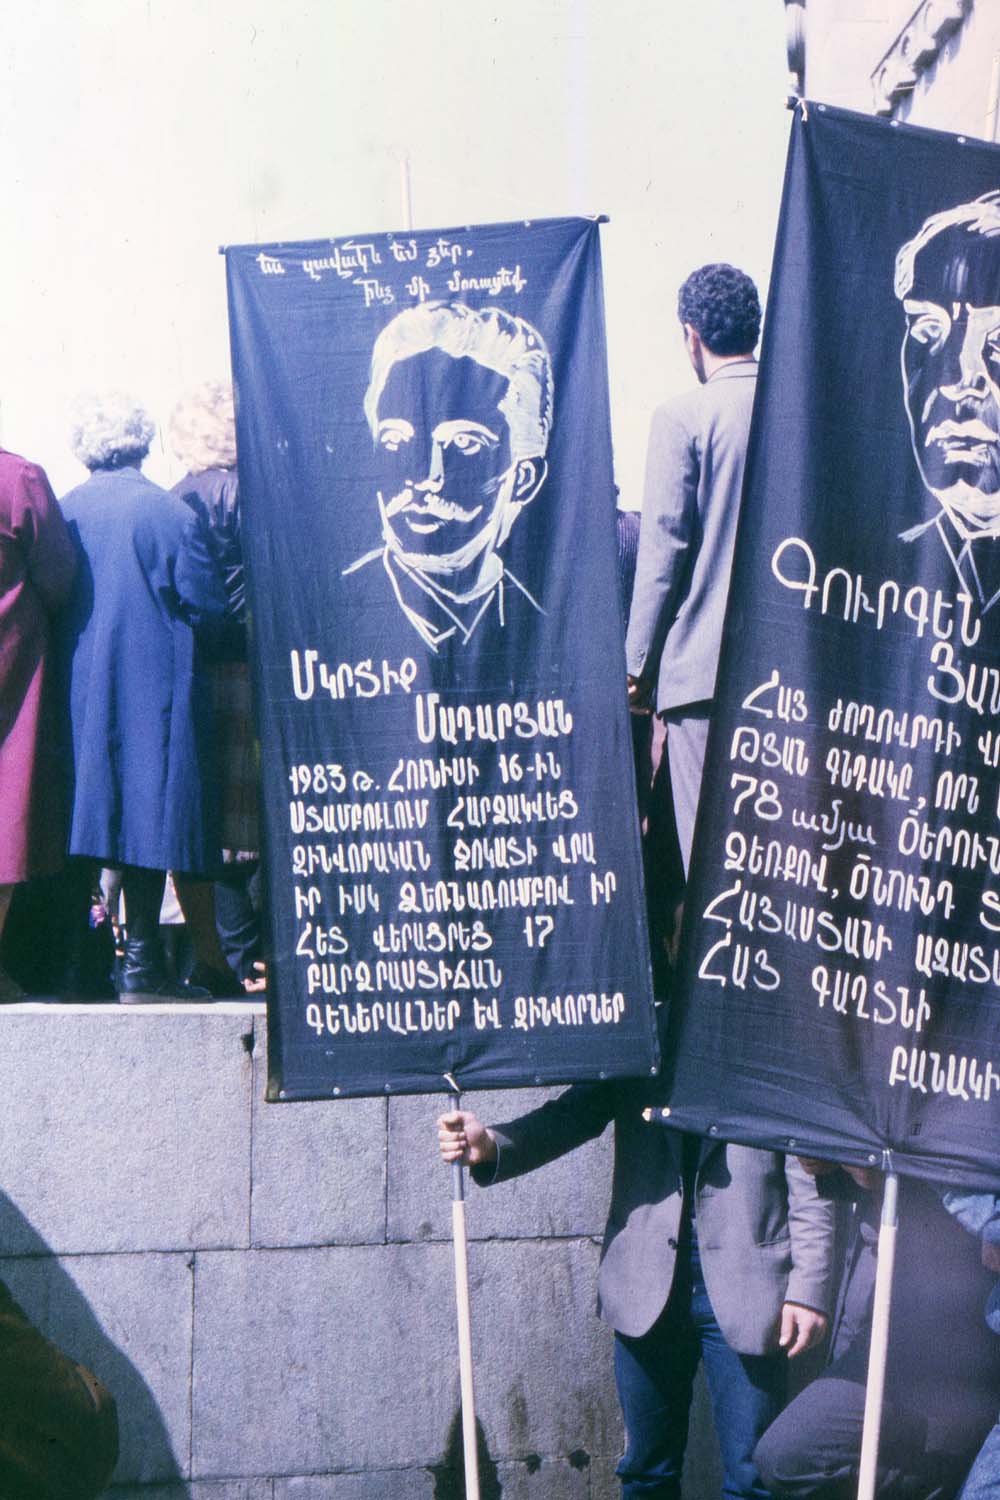 ես զավակն եմ ձեր,
ինձ մի մոռացեք
Մկրտիչ
Մադարյան
1983 թ. Հունիսի 16-ին
Ստամբուլում հարձակվեց
զինվորական ջոկատի վրա
իր իսկ ձեռնառումբով իր
հետ վերացրեց 17
բարձրաստիճան
գեներալներ եվ զինվորներ
Գուրգեն
Յան
Հայ ժողովրդի վր
թյան գնդակը, որն
78 ամյա ծերուն
ձեռքով, ծնունդ տ
Հայաստանի ազատա
Հայ գաղտնի
բանակի